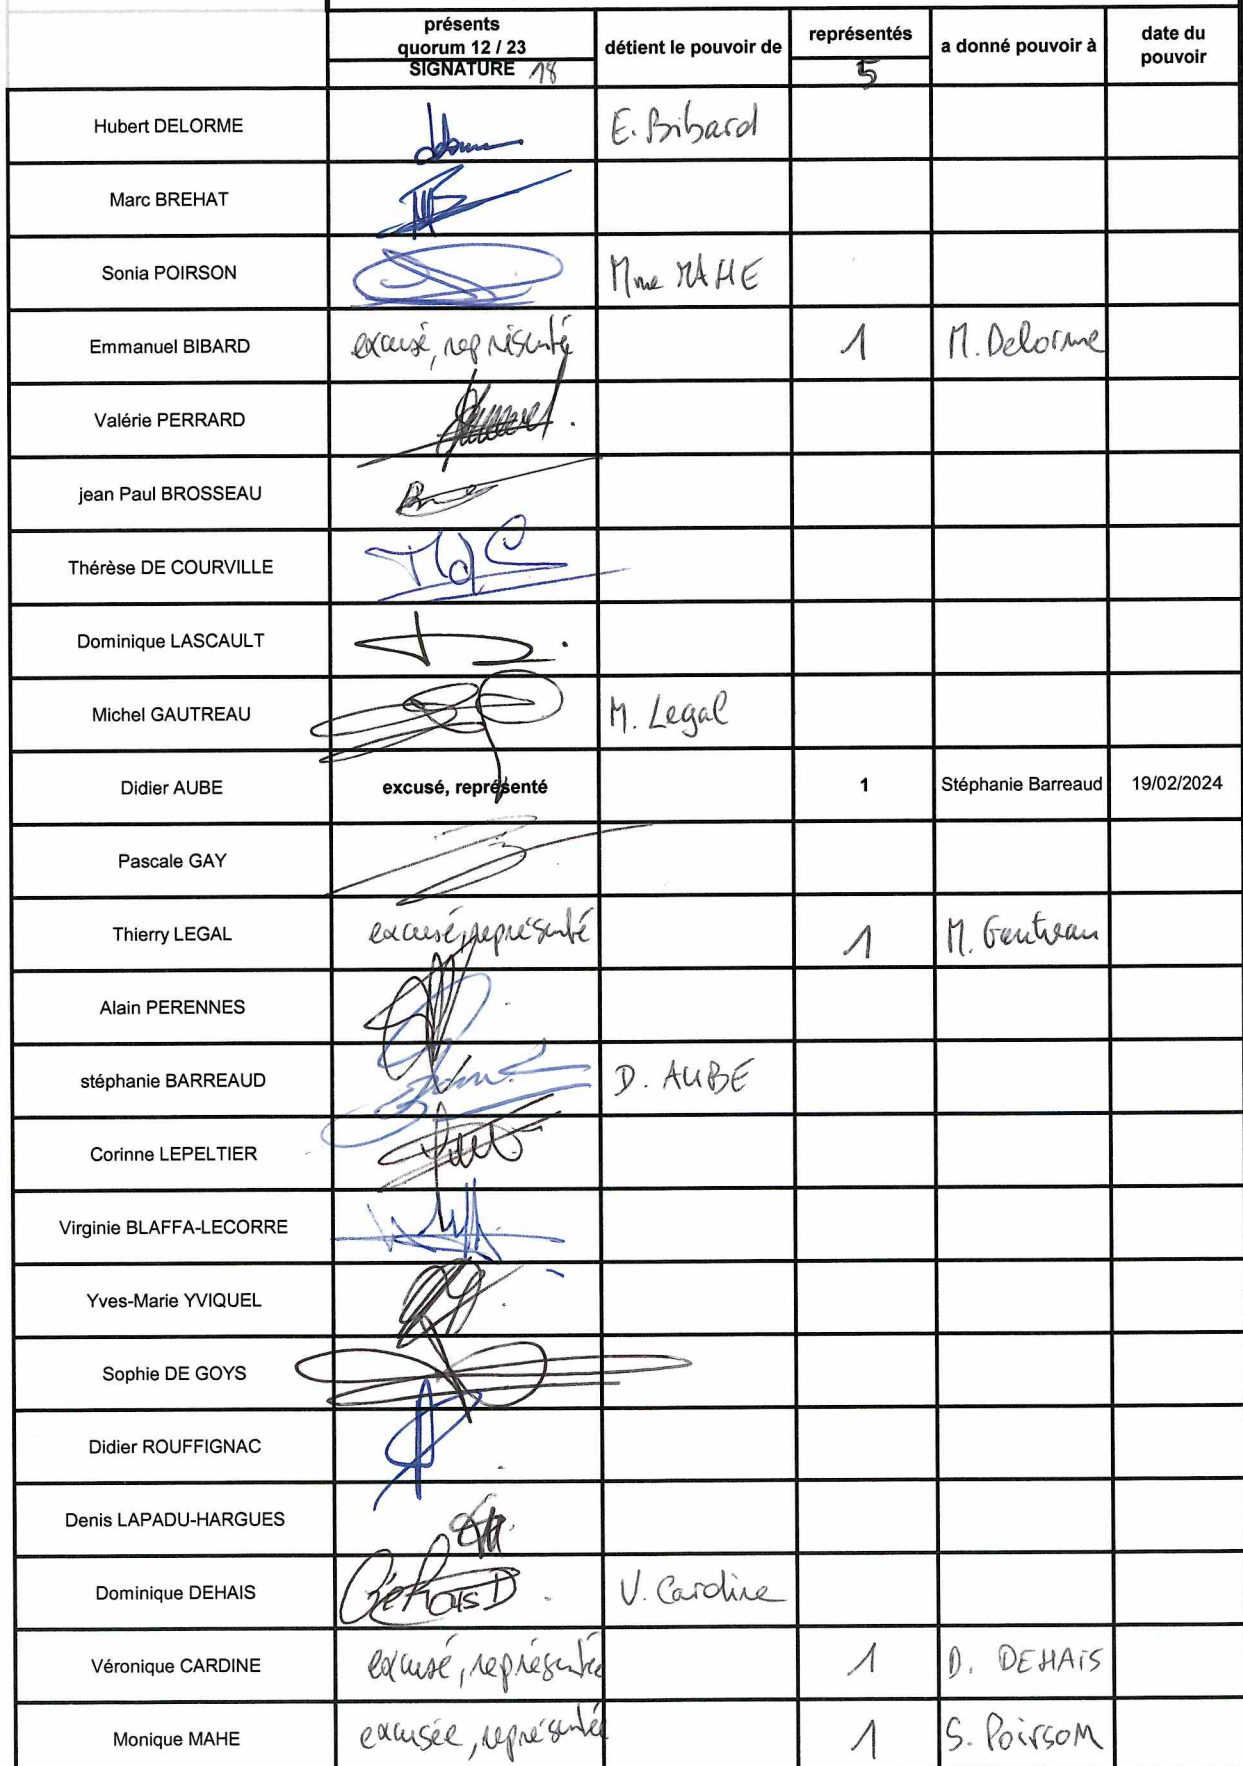 présents
quorum 12 / 23
SIGNATURE 18
détient le pouvoir de
représentés
5
a donné pouvoir à
date du
pouvoir
Hubert DELORME E. Bibard
Marc BREHAT
Sonia POIRSON Mme MAHE
Emmanuel BIBARD excusé, représenté 1 M. Delorme
Valérie PERRARD
jean Paul BROSSEAU
Thérèse DE COURVILLE
Dominique LASCAULT
Michel GAUTREAU M. Legal
Didier AUBE excusé, représenté 1 Stéphanie Barreaud 19/02/2024
Pascale GAY
Thierry LEGAL excusé, représenté 1 M. Gautreau
Alain PERENNES
stéphanie BARREAUD D. AUBE
Corinne LEPELTIER
Virginie BLAFFA-LECORRE
Yves-Marie YVIQUEL
Sophie DE GOYS
Didier ROUFFIGNAC
Denis LAPADU-HARGUES
Dominique DEHAIS Dehais D V. Cardine
Véronique CARDINE excusé, représentée 1 D. DEHAIS
Monique MAHE excusée, représentée 1 S. Poirson